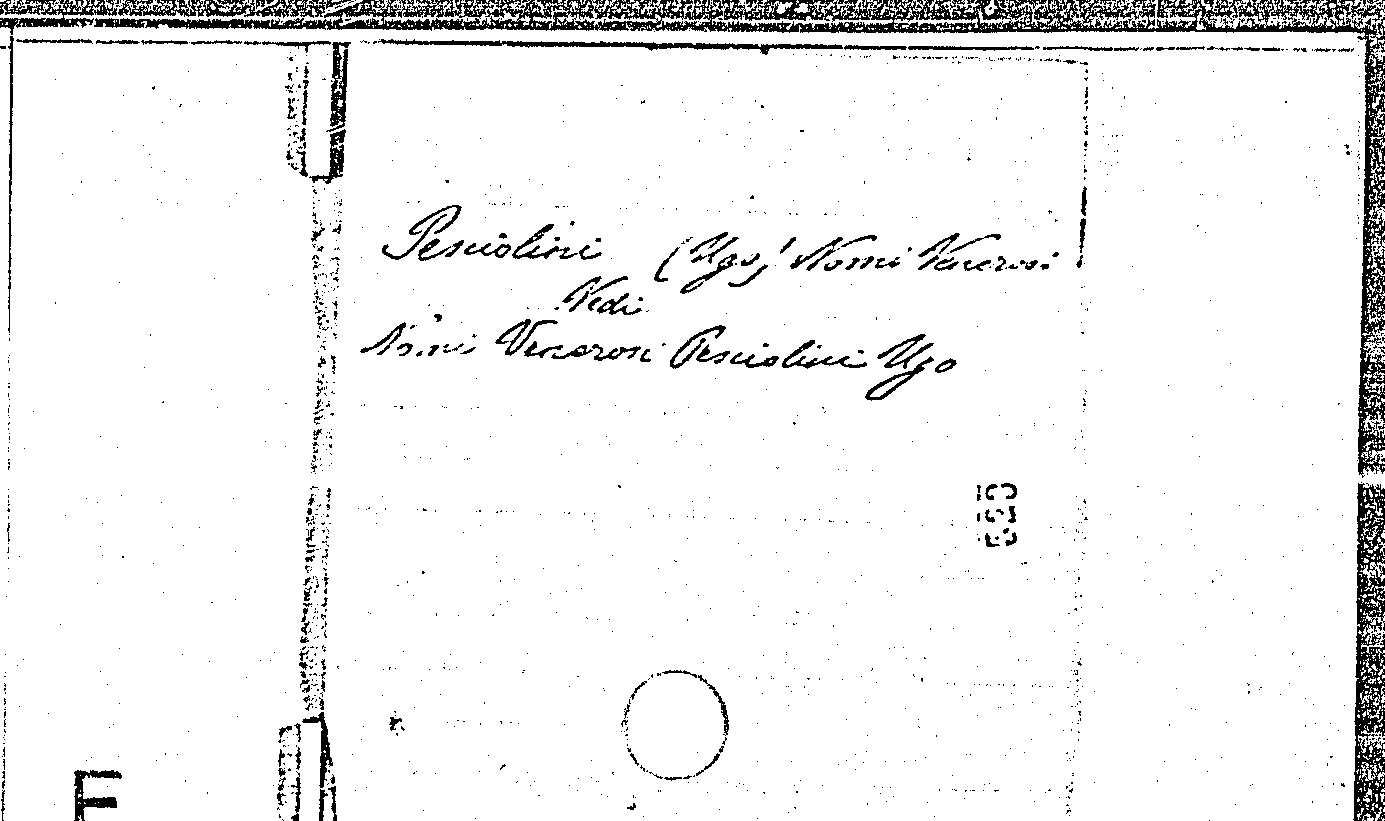 Pesciolini (Ugo) Nomi Venerosi
Vedi
Nomi Venerosi Pesciolini Ugo
E